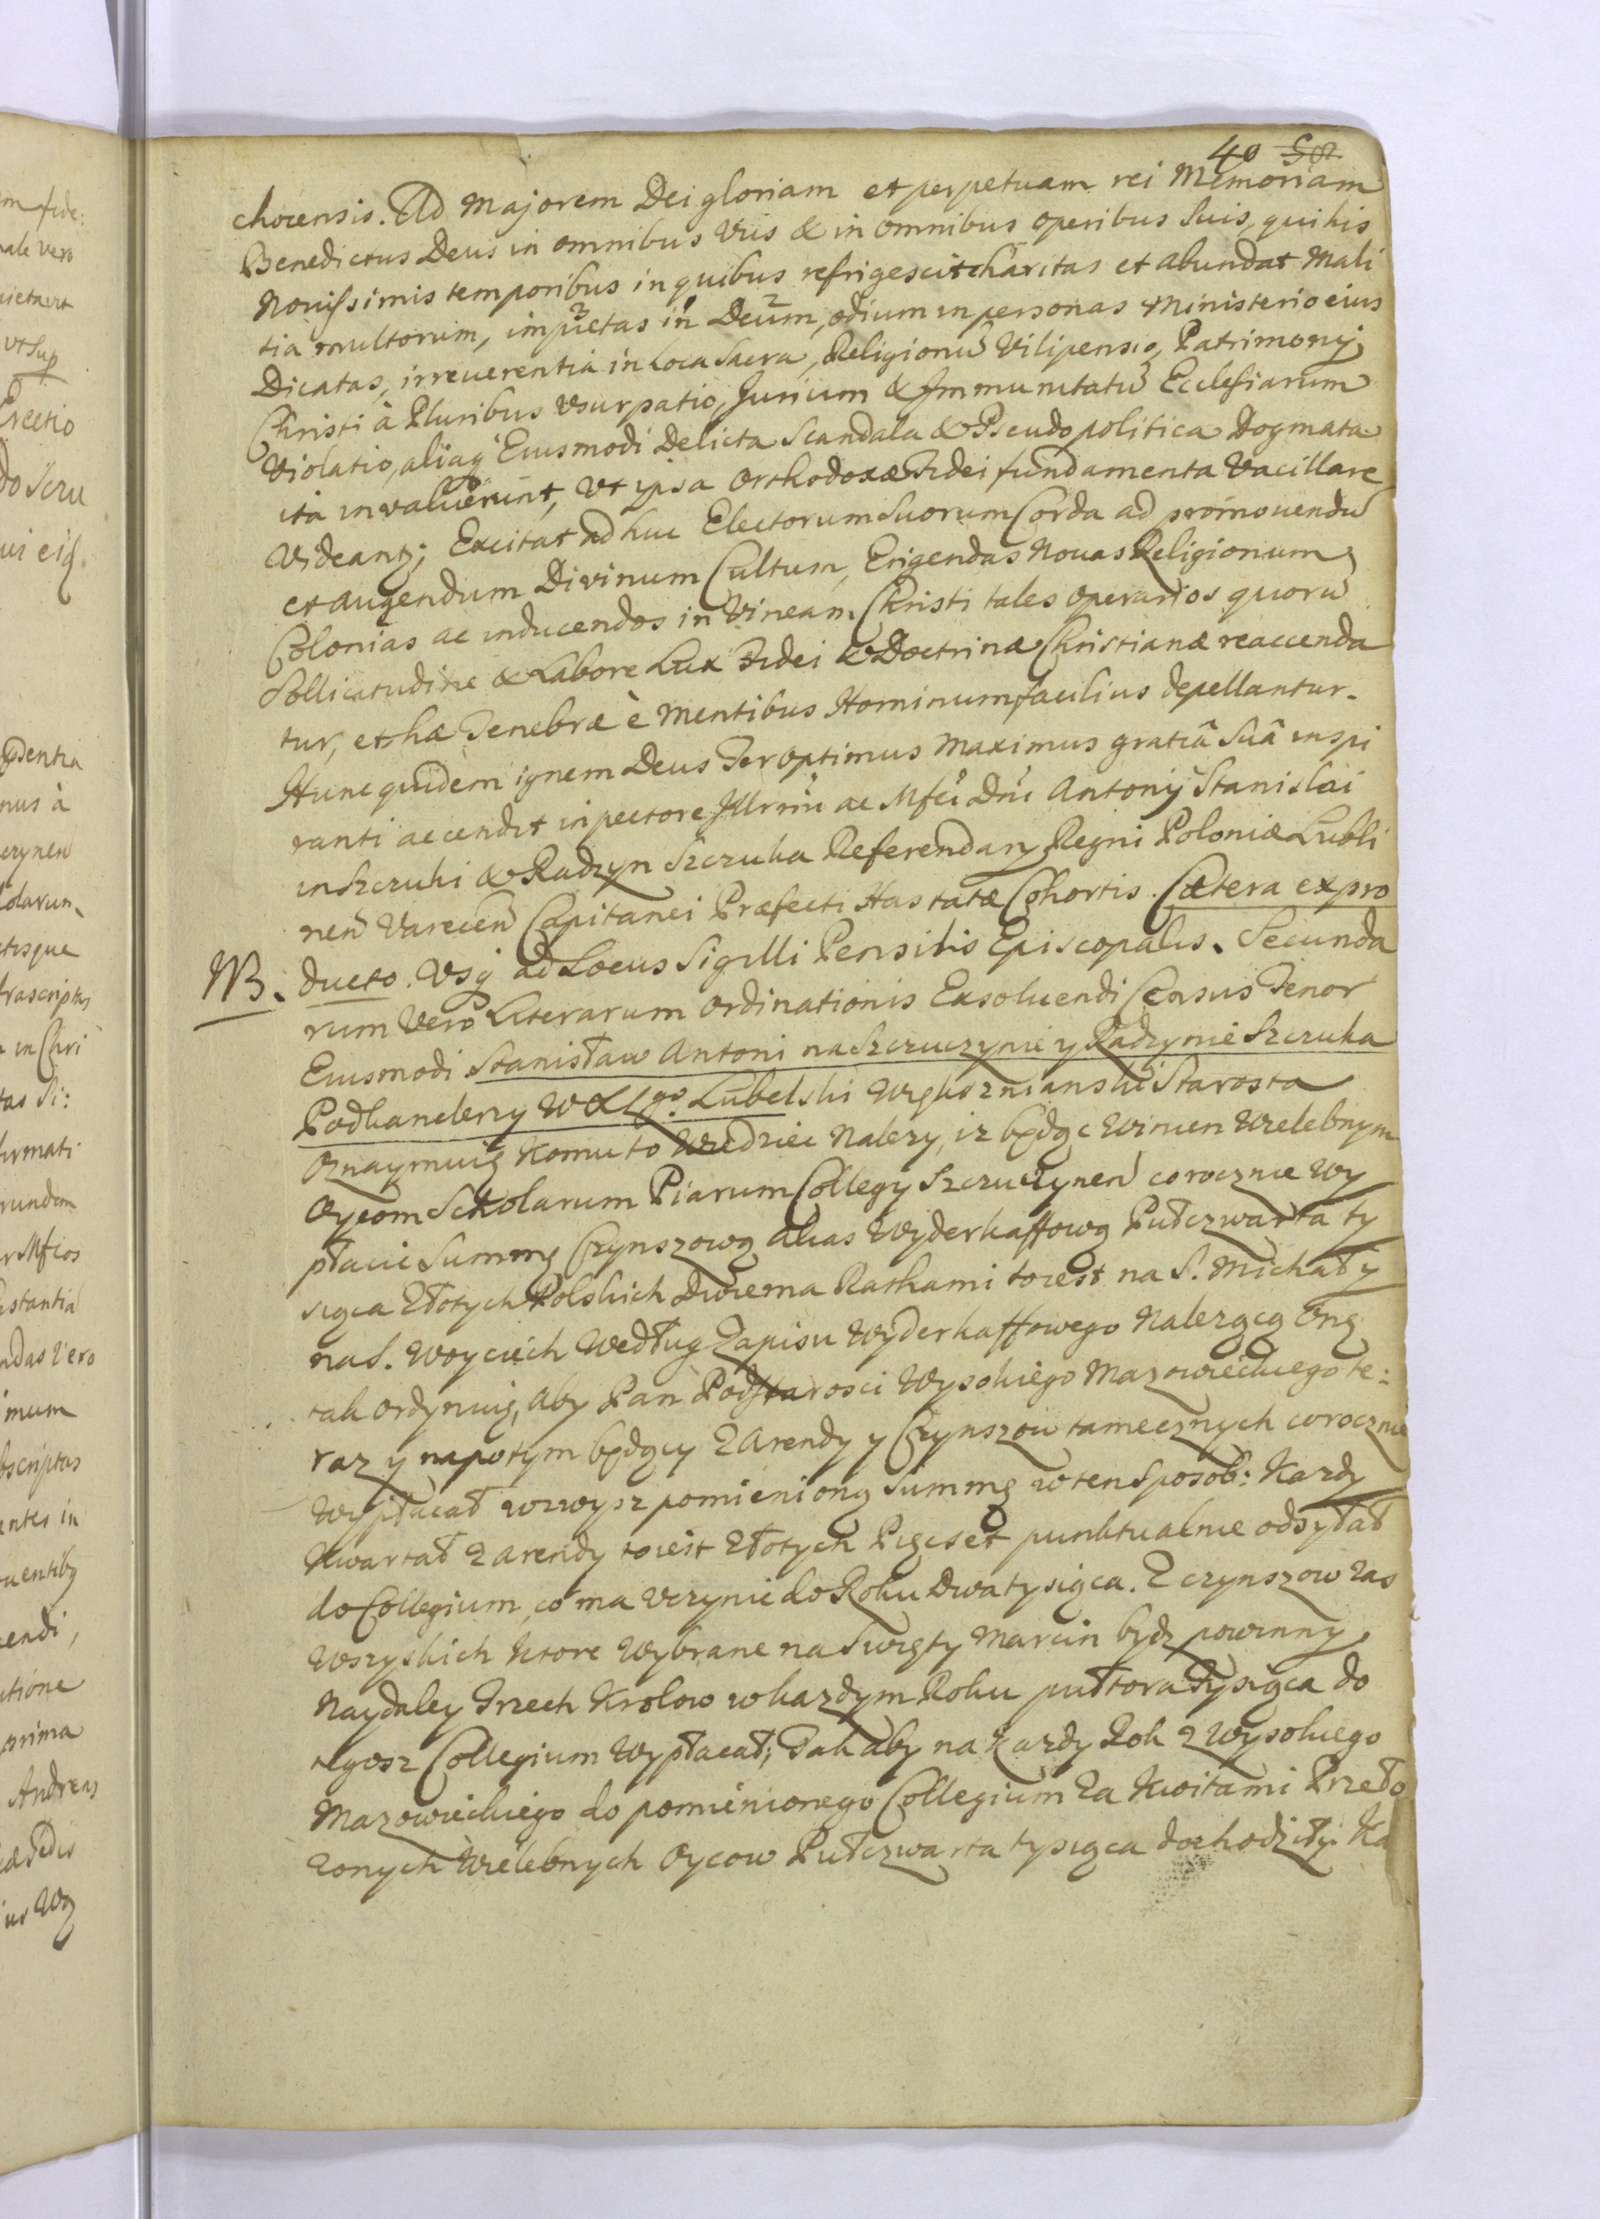 40 50
chocensis. Ad Majorem Dei gloriam et perpetuam rei Memoriam
Benedictus Deus in omnibus Viis & in omnibus operibus Suis, qui his
Nouissimis temporibus in quibus refrigescit charitas et abundat Mali
tia multorum, impietas in Deum, odium in personas Ministerio eius
Dicatas, irreuerentia in Loca Sacra, Religionũ Vilipensio, Patrimonij
Christi à Pluribus Vsurpatio, Jurium & Immunitatũ Ecclesiarum
Violatio, aliaq; Eiusmodi Delicta Scandala & Pseudopolitica Dogmata
ita invaluerunt, Vt ipsa Orthodoxæ Fidei fundamenta Vacillare
Videantʒ; Excitat ad huc Electorum Suorum Corda ad promouendũ
et augendum Divinum Cultum, Erigendas Nouas Religionum
Colonias ac inducendos in Vineam Christi tales operarios quorũ
Sollicitudine & Labore Lux Fidei & Doctrinæ Christianæ reaccenda
tur, et hæ Tenebræ è Mentibus Hominum facilius depellantur.
Hunc quidem ignem Deus Ter Optimus Maximus gratiâ Suâ inspi
ranti accendit in pectore Illrmi ac Mfci Dni Antonij Stanislai
in Szczuki & Radzyn Szczuka Referendarij Regni Poloniæ Lubli
nen̄ Varecen̄ Capitanei Præfecti Hastatæ Cohortis. Cætera ex pro
NB. ducto. Vsq; ad Locus Sigilli Pensilis Episcopalis. Secunda
rum Vero Literarum Ordinationis Exsoluendi Census Tenor
Eiusmodi Stanisław Antoni na Szczuczynie y Radzynie Szczuka
Podkanclerzy W X Lgo. Lubelski Starosta
Oznaymuię Komu to Wiedziec Nalezy, iz będąc Winien Wielebnym
Oycom Scholarum Piarum Collegij Szczuczynen̄ corocznie Wy
płacic Summę Czynszową alias Wyderkaffową Pułczwarta ty
siąca Złotych Polskich Dwiema Rathami toiest na S. Michał y
na S. Woyciech Według Zapisu Wyderkaffowego Nalezącą Onę
tak Ordynuię, aby Pan Podstarosci Wysokiego Mazowieckiego te:
raz y napotym będący z Arendy y Czynszow tamecznych corocznie
Wypłacał wzwysz pomienioną Summę w ten Sposob: Kazdy
Kwartał z Arendy toiest Złotych Pięcset punktualnie odsyłał
do Collegium, co ma Vczynic do Roku Dwa tysiąca. Z czynszow zas
Wszyskich Ktore Wybrane na Swięty Marcin bydz powinny,
Naydaley Trzech Krolow w kazdym Roku pułtora Tysiąca do
tegosz Collegium Wypłacał; Tak aby na Kazdy Rok z Wysokiego
Mazowieckiego do pomienionego Collegium Za Kwitami Przeło
zonych Wielebnych Oycow Pułczwarta tysiąca dochodziły. Ka